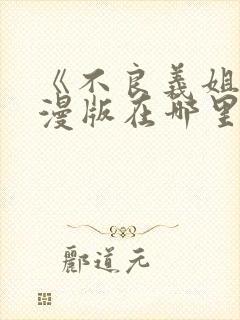 《不良义姐
漫版在哪里
郦道元